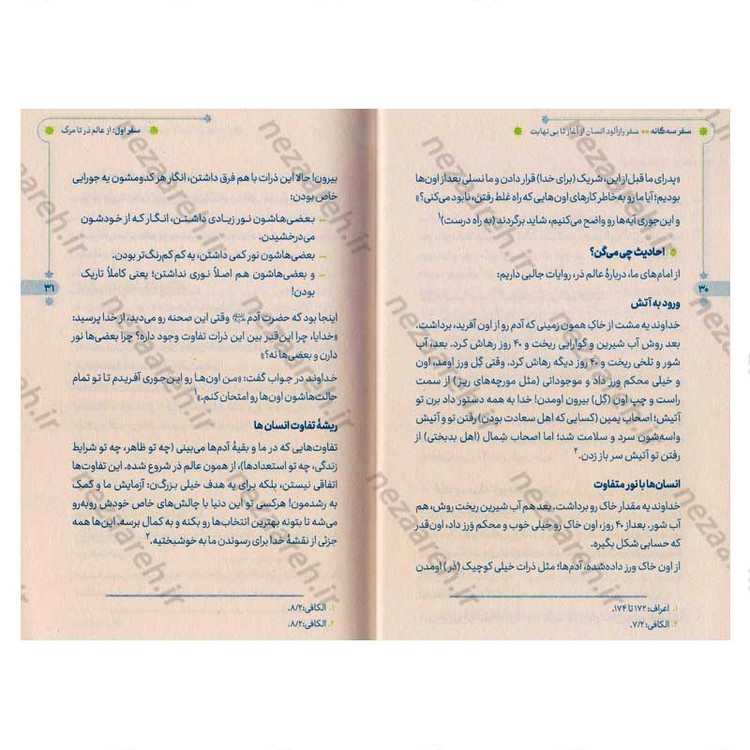 سفر سه‌گانه •• سفر رازآلود انسان از آغاز تا بی نهایت
«پدرای ما قبل از این، شریک (برای خدا) قرار دادن و ما نسلی بعد از اون‌ها
بودیم؛ آیا ما رو به خاطر کارهای اون‌هایی که راه غلط رفتن، نابود می‌کنی؟»
و این‌جوری آیه‌ها رو واضح می‌کنیم، شاید برگردند (به راه درست)۱
احادیث چی می‌گن؟
از امام‌های ما، دربارهٔ عالم ذر، روایات جالبی داریم:
ورود به آتش
خداوند یه مشت از خاکِ همون زمینی که آدم رو از اون آفرید، برداشت.
بعد روش آب شیرین و گوارایی ریخت و ۴۰ روز رهاش کرد. بعد، آب
شور و تلخی ریخت و ۴۰ روز دیگه رهاش کرد. وقتی گِل ورز اومد، اون
و خیلی محکم ورز داد و موجوداتی (مثل مورچه‌های ریز) از سمت
راست و چپ اون (گِل) بیرون اومدن! خدا به همه دستور داد برن تو
آتیش؛ اصحاب یمین (کسایی که اهل سعادت بودن) رفتن تو و آتیش
واسه‌شون سرد و سلامت شد؛ اما اصحاب شِمال (اهل بدبختی) از
رفتن تو آتیش سر باز زدن.۲
انسان‌ها با نور متفاوت
خداوند یه مقدار خاک رو برداشت. بعد هم آب شیرین ریخت روش، هم
آب شور. بعد از ۴۰ روز، اون خاک رو خیلی خوب و محکم ورز داد، اون‌قدر
که حسابی شکل بگیره.
از اون خاک ورز داده‌شده، آدم‌ها؛ مثل ذرات خیلی کوچیک (ذر) اومدن
۱. اعراف: ۱۷۲ تا ۱۷۴.
۲. الکافی: ۷/۲.
۳۰
سفر اول: از عالم ذر تا مرگ
بیرون! حالا این ذرات با هم فرق داشتن، انگار هر کدومشون یه جورایی
خاص بودن:
– بعضی‌هاشون نور زیادی داشتن، انگار که از خودشون
می‌درخشیدن.
– بعضی‌هاشون نور کمی داشتن، یه کم کم‌رنگ‌تر بودن.
– و بعضی‌هاشون هم اصلاً نوری نداشتن؛ یعنی کاملاً تاریک
بودن!
اینجا بود که حضرت آدم وقتی این صحنه رو می‌دید، از خدا پرسید:
«خدایا، چرا این‌قدر بین این ذرات تفاوت وجود داره؟ چرا بعضی‌ها نور
دارن و بعضی‌ها نه؟»
خداوند در جواب گفت: «من اون‌ها رو این‌جوری آفریدم تا تو تمام
حالت‌هاشون اون‌ها رو امتحان کنم.»۱
ریشهٔ تفاوت انسان ها
تفاوت‌هایی که در ما و بقیهٔ آدم‌ها می‌بینی (چه تو ظاهر، چه تو شرایط
زندگی، چه تو استعدادها)، از همون عالم ذر شروع شده. این تفاوت‌ها
اتفاقی نیستن، بلکه برای یه هدف خیلی بزرگ‌ن: آزمایش ما و کمک
به رشدمون! هرکسی تو این دنیا با چالش‌های خاص خودش روبه‌رو
می‌شه تا بتونه بهترین انتخاب‌ها رو بکنه و به کمال برسه. این‌ها همه
جزئی از نقشهٔ خدا برای رسوندن ما به خوشبختیه.۲
۱. الکافی: ۸/۲.
۲. الکافی: ۸/۲.
۳۱
nezaareh.ir